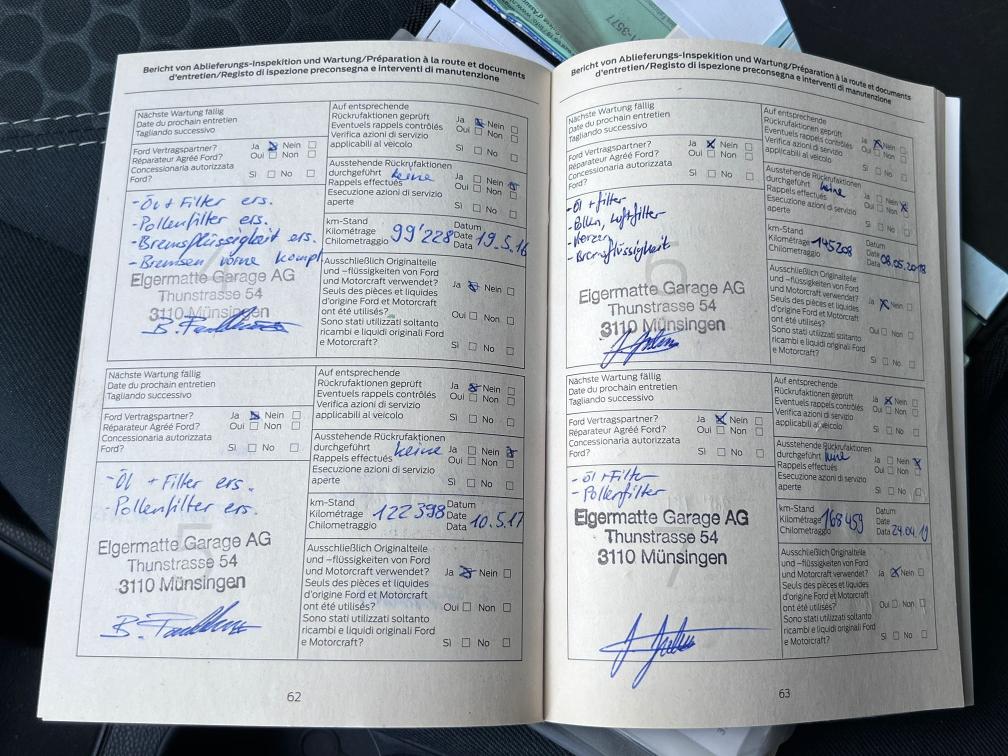 Bericht von Ablieferungs-Inspekition und Wartung/Préparation à la route et documents
d'entretien/Registo di ispezione preconsegna e interventi di manutenzione
Nächste Wartung fällig
Date du prochain entretien
Tagliando successivo
Auf entsprechende
Rückrufaktionen geprüft Ja Nein
Eventuels rappels contrôlés Oui Non
Verifica azioni di servizio
applicabili al veicolo Sì No
Ford Vertragspartner? Ja Nein
Réparateur Agréé Ford? Oui Non
Concessionaria autorizzata
Ford? Sì No
Ausstehende Rückrufaktionen
durchgeführt keine Ja Nein
Rappels effectués Oui Non
Esecuzione azioni di servizio
aperte Sì No
- Öl + Filter ers.
- Pollenfilter ers.
- Bremsflüssigkeit ers.
- Bremsen vorne kompl
Eigermatte Garage AG
Thunstrasse 54
3110 Münsingen
km-Stand Datum
Kilométrage 99'228 Date 19.5.16
Chilometraggio Data
Ausschließlich Originalteile
und -flüssigkeiten von Ford
und Motorcraft verwendet? Ja Nein
Seuls des pièces et liquides
d'origine Ford et Motorcraft
ont été utilisés? Oui Non
Sono stati utilizzati soltanto
ricambi e liquidi originali Ford
e Motorcraft? Sì No
Nächste Wartung fällig
Date du prochain entretien
Tagliando successivo
Auf entsprechende
Rückrufaktionen geprüft Ja Nein
Eventuels rappels contrôlés Oui Non
Verifica azioni di servizio
applicabili al veicolo Sì No
Ford Vertragspartner? Ja Nein
Réparateur Agréé Ford? Oui Non
Concessionaria autorizzata
Ford? Sì No
Ausstehende Rückrufaktionen
durchgeführt keine Ja Nein
Rappels effectués Oui Non
Esecuzione azioni di servizio
aperte Sì No
- Öl + Filter ers.
- Pollenfilter ers.
Eigermatte Garage AG
Thunstrasse 54
3110 Münsingen
km-Stand Datum
Kilométrage 122398 Date
Chilometraggio Data 10.5.17
Ausschließlich Originalteile
und -flüssigkeiten von Ford
und Motorcraft verwendet? Ja Nein
Seuls des pièces et liquides
d'origine Ford et Motorcraft
ont été utilisés? Oui Non
Sono stati utilizzati soltanto
ricambi e liquidi originali Ford
e Motorcraft? Sì No
62
Bericht von Ablieferungs-Inspekition und Wartung/Préparation à la route et documents
d'entretien/Registo di ispezione preconsegna e interventi di manutenzione
Nächste Wartung fällig
Date du prochain entretien
Tagliando successivo
Auf entsprechende
Rückrufaktionen geprüft Ja Nein
Eventuels rappels contrôlés Oui Non
Verifica azioni di servizio
applicabili al veicolo Sì No
Ford Vertragspartner? Ja Nein
Réparateur Agréé Ford? Oui Non
Concessionaria autorizzata
Ford? Sì No
Ausstehende Rückrufaktionen
durchgeführt keine Ja Nein
Rappels effectués Oui Non
Esecuzione azioni di servizio
aperte Sì No
- Öl + filter
- Pollen, Luftfilter
- Kerzen
- Bremsflüssigkeit
6
Eigermatte Garage AG
Thunstrasse 54
3110 Münsingen
km-Stand Datum
Kilométrage 145208 Date
Chilometraggio Data 08.05.2018
Ausschließlich Originalteile
und -flüssigkeiten von Ford
und Motorcraft verwendet? Ja Nein
Seuls des pièces et liquides
d'origine Ford et Motorcraft
ont été utilisés? Oui Non
Sono stati utilizzati soltanto
ricambi e liquidi originali Ford
e Motorcraft? Sì No
Nächste Wartung fällig
Date du prochain entretien
Tagliando successivo
Auf entsprechende
Rückrufaktionen geprüft Ja Nein
Eventuels rappels contrôlés Oui Non
Verifica azioni di servizio
applicabili al veicolo Sì No
Ford Vertragspartner? Ja Nein
Réparateur Agréé Ford? Oui Non
Concessionaria autorizzata
Ford? Sì No
Ausstehende Rückrufaktionen
durchgeführt keine Ja Nein
Rappels effectués Oui Non
Esecuzione azioni di servizio
aperte Sì No
- Öl + Filter
- Pollenfilter
Eigermatte Garage AG
Thunstrasse 54
3110 Münsingen
km-Stand Datum
Kilométrage 168459 Date
Chilometraggio Data 24.04.19
Ausschließlich Originalteile
und -flüssigkeiten von Ford
und Motorcraft verwendet? Ja Nein
Seuls des pièces et liquides
d'origine Ford et Motorcraft
ont été utilisés? Oui Non
Sono stati utilizzati soltanto
ricambi e liquidi originali Ford
e Motorcraft? Sì No
63